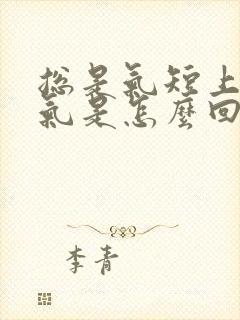 总是氣短上
氣是怎麼回
李青